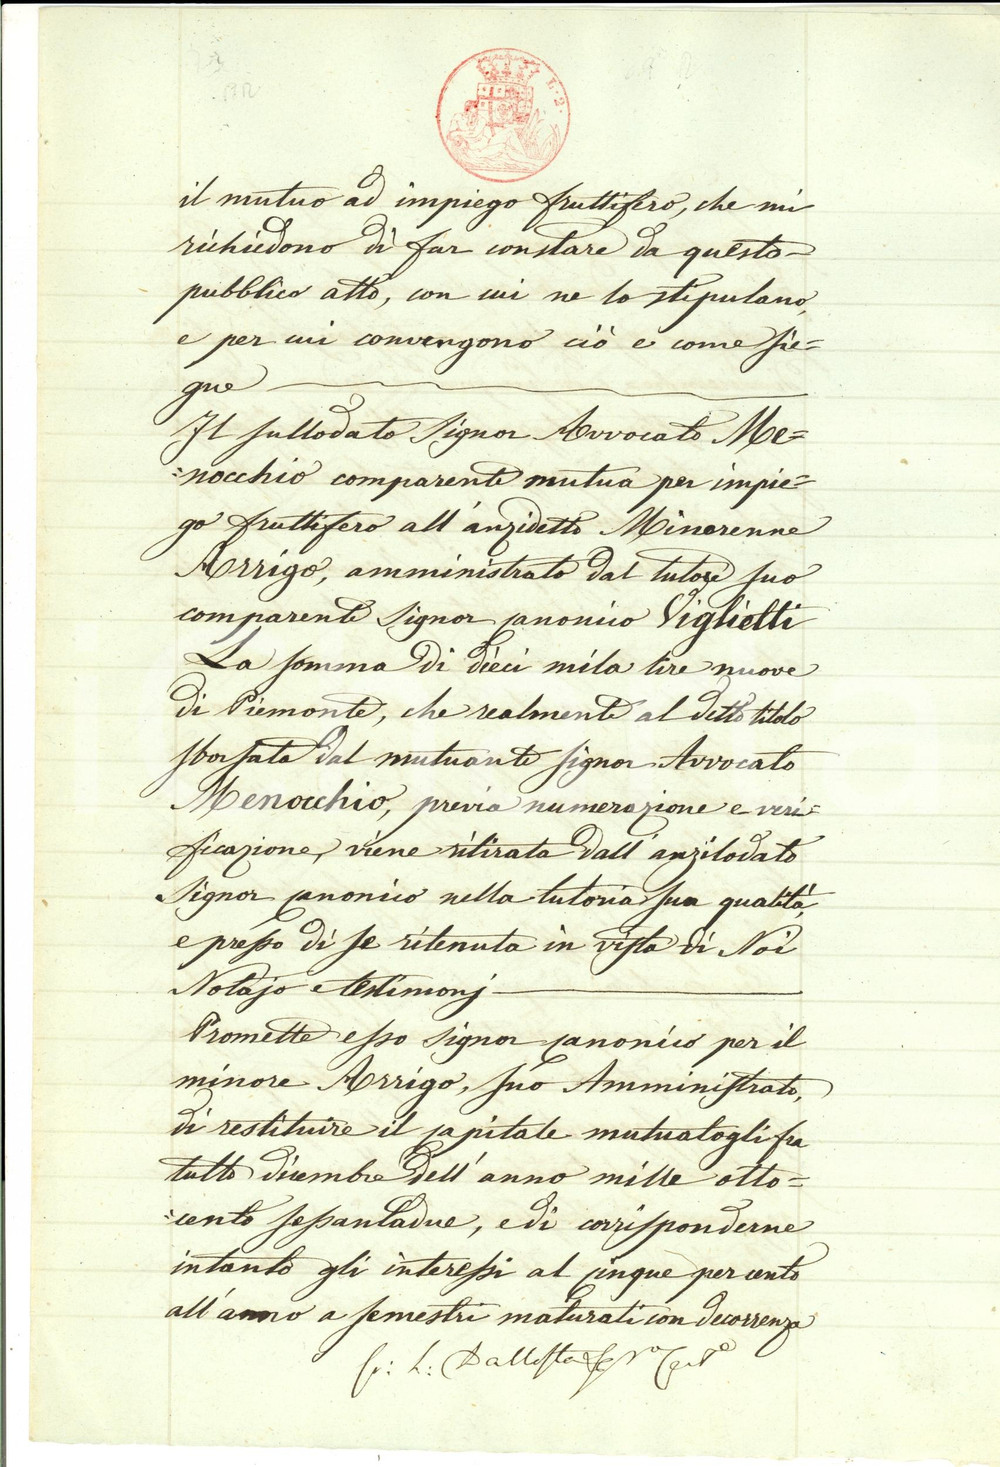 L. 2.
il mutuo ad impiego fruttifero, che mi
richiedono di far constare da questo
pubblico atto, con cui ne lo stipulano,
e per cui convengono ciò e come sie=
gue
Il sullodato Signor Avvocato Me=
=nocchio comparente mutua per impie=
go fruttifero all'anzidetto Minorenne
Arrigo, amministrato dal tutore suo
comparente Signor canonico Viglietti
La somma di dieci mila lire nuove
di Piemonte, che realmente al detto titolo
sborsata dal mutuante signor Avvocato
Menocchio, previa numerazione e veri=
ficazione, viene ritirata dall'anzilodato
signor canonico nella tutoria sua qualità,
e presso di se ritenuta in vista di Noi
Notajo e testimonj
Promette esso signor canonico per il
minore Arrigo, suo Amministrato,
di restituire il capitale mutuatogli fra
tutto dicembre dell'anno mille otto=
=cento sessantadue, e di corrisponderne
intanto gli interessi al cinque per cento
all'anno a semestri maturati con decorrenza